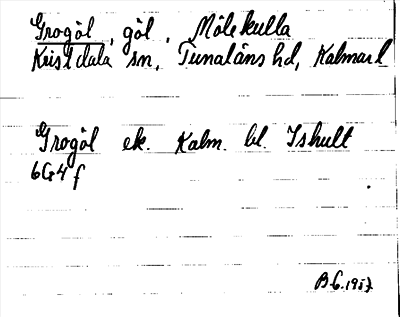 Grogöl, göl, Mölekulla
Kristdala sn, Tunaläns hd, Kalmar l
Grogöl ek. Kalm. bl. Ishult
6G4f
B G. 1957